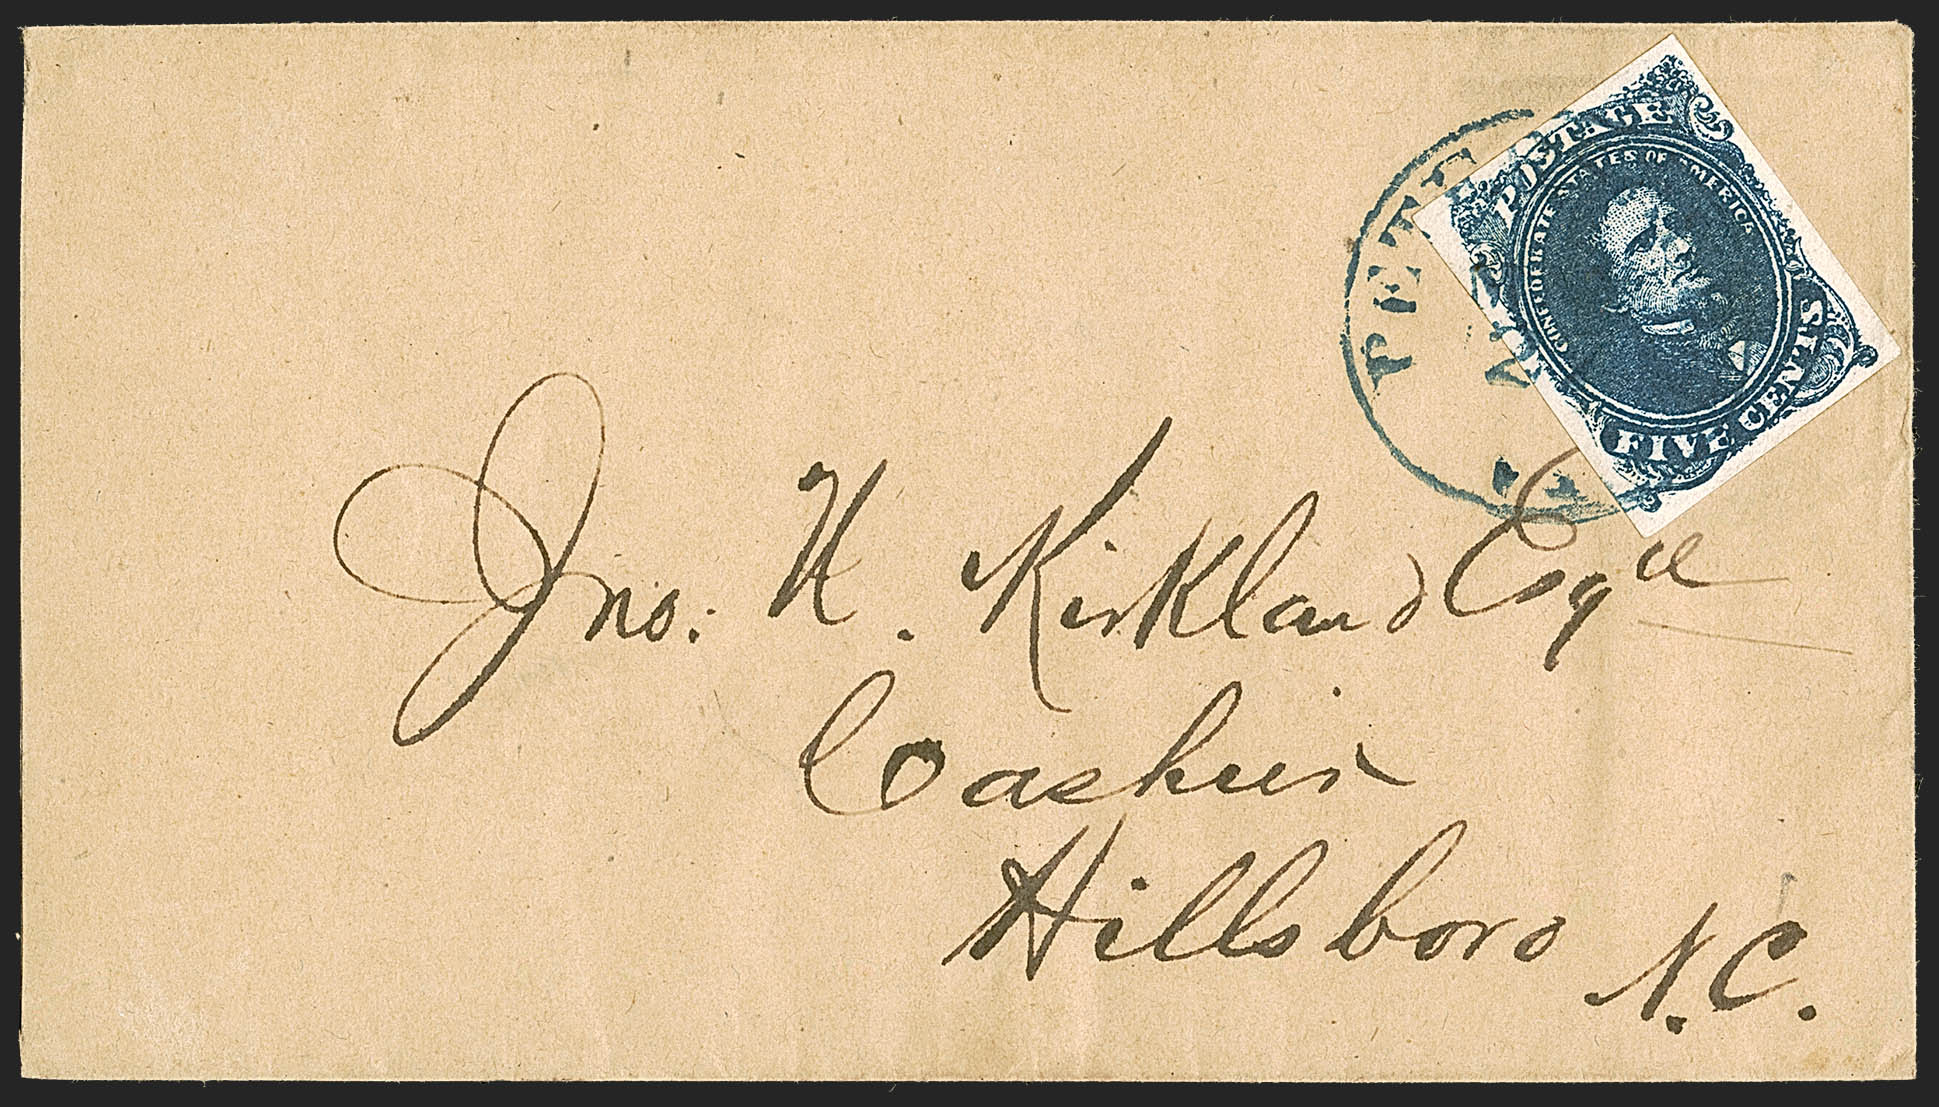 POSTAGE
CONFEDERATE STATES OF AMERICA
FIVE CENTS
PETE
Jno: U. Kirkland Esqre
Cashier
Hillsboro
N.C.